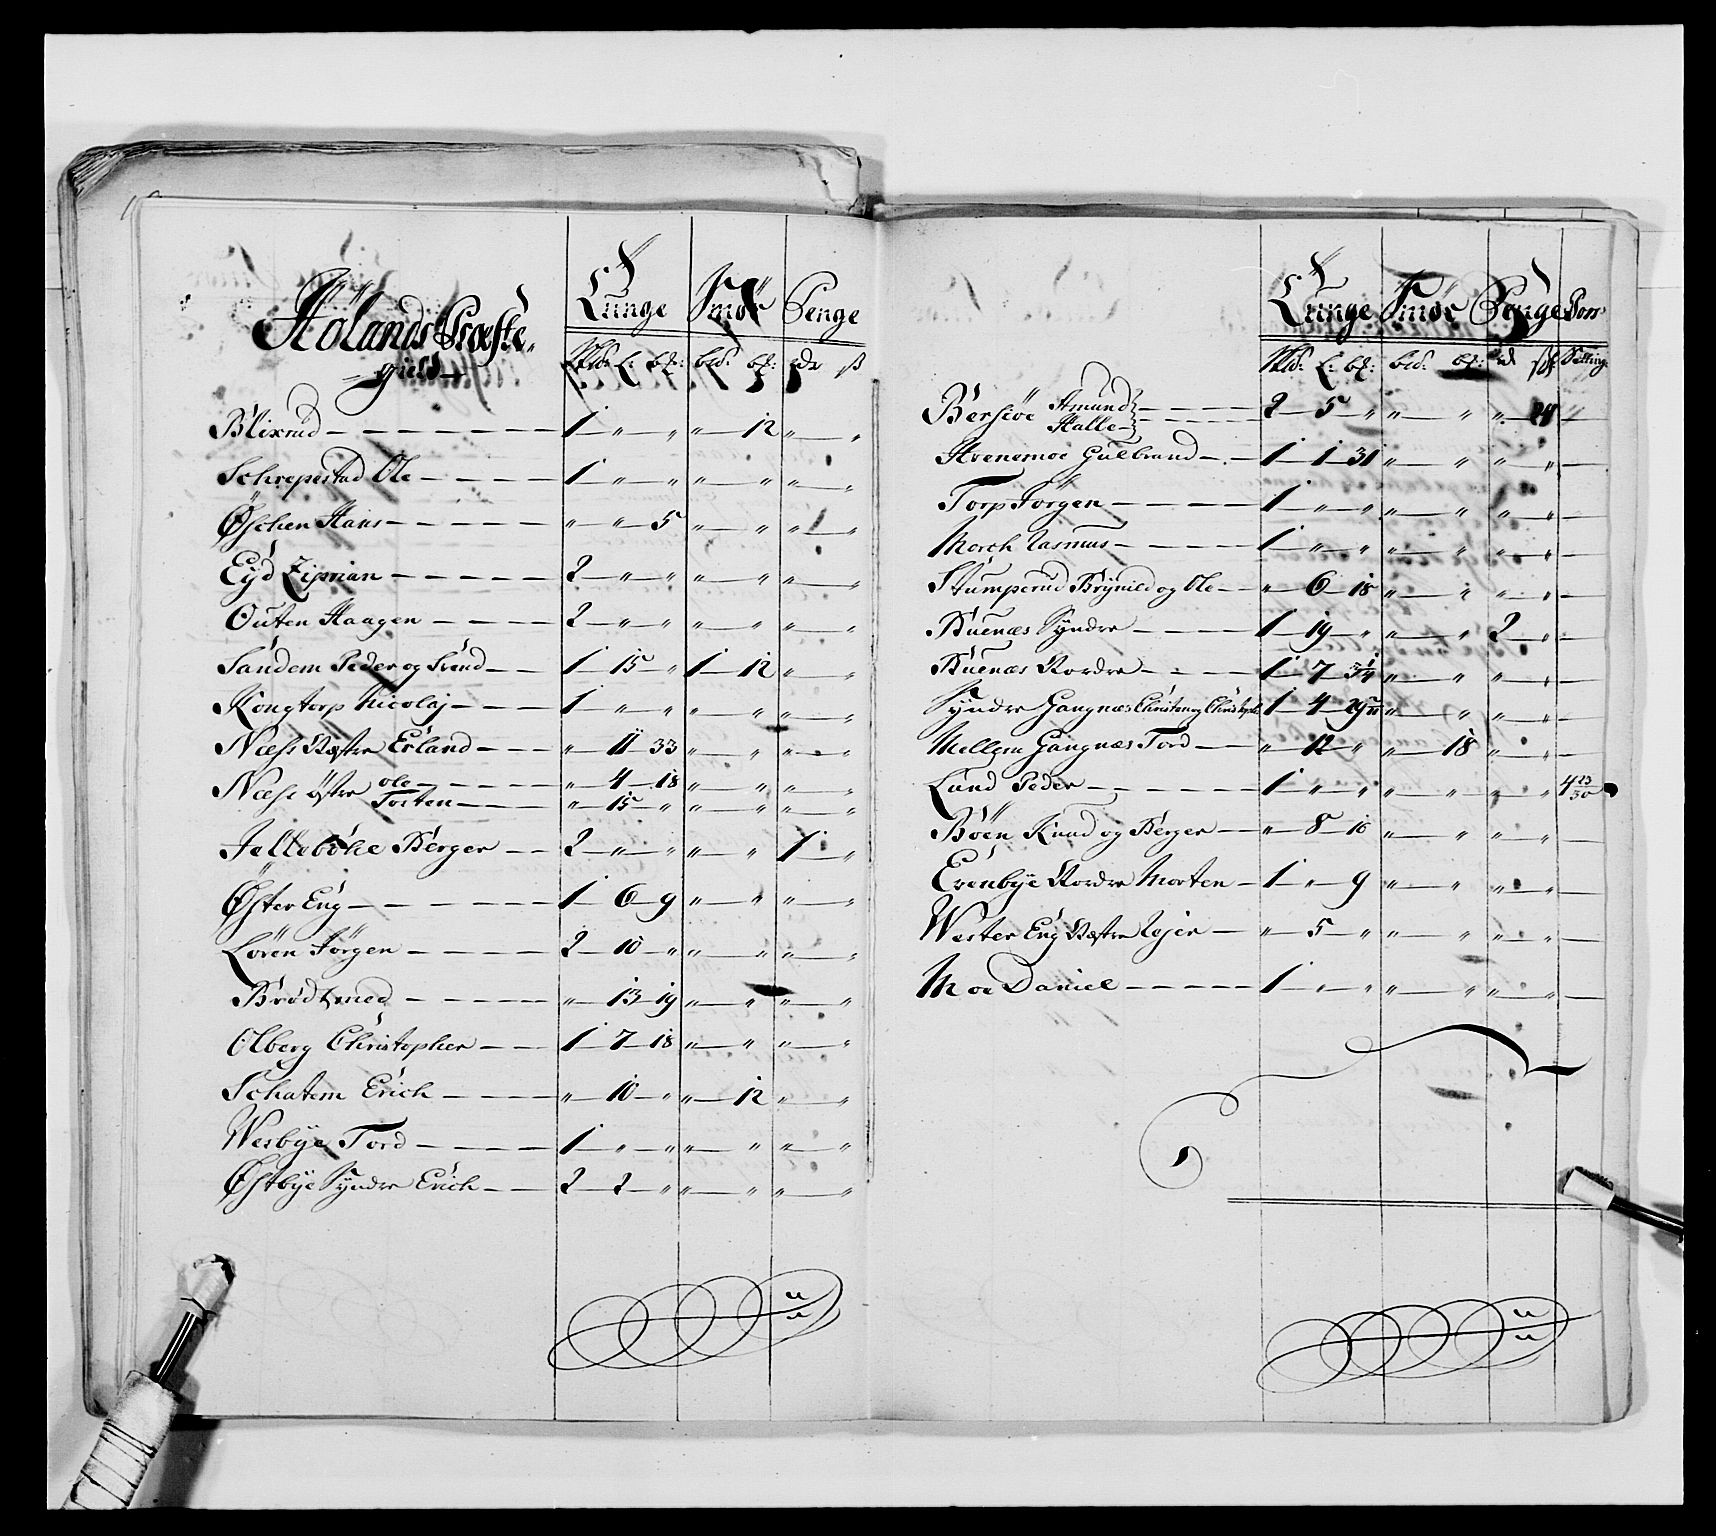 Hölands Præste-
gield
Tunge Smör Penge
Skds: L: bζ: bld: bζ: rdr ß
Blixrud 1 " " " 12 " "
Schrepestad Ole 1 " " " " " "
Øschen Hans " " 5 " " " "
Eyd Ziprian 2 " " " " " "
Outen Haagen 2 " " " " " "
Sandem Peder og Svend 1 15 " 1 12 " "
Kongtorp Nicolaj 1 " " " " " "
Næss Wæstre Erland " 11 33 " " " "
Næss Østre Ole " 4 18 " " " "
Torsten " 15 " " " " "
Jellebøke Berger 2 " " " " 1 "
Øster Eng 1 6 9 " " " "
Lören Jörgen 2 10 " " " " "
Brödsmed " 13 19 " " " "
Olberg Christopher 1 7 18 " " " "
Schatem Erich " 10 " " 12 " "
Wesbÿe Tord 1 " " " " " "
Østbÿe Syndre Erich 2 2 " " " " "
Tunge Smör Penge Korn
Skld: L: bζ: bld: bζ: rd ß Setting
Bersiöe Amund
Halle 2 5 " " " " 24
Hvenemoe Gulbrand 1 1 31 " " " "
Torp Jörgen 1 " " " " " "
Morch Rasmus 1 " " " " " "
Stumperud Brynild og Ole " 6 18 " " " "
Buenæs Syndre 1 19 " " " 2 "
Buenæs Nordre 1 7 3 1/4 " " " "
Syndre Gangnæs Christen og Christoph 1 4 " " " "
Mellem Gangnæs Tord " 12 " " 18 " "
Lund Peder 1 " " " " " " 4 23/30
Böen Knud og Berger " 8 16 " " " "
Erenbÿe Nordre Morten 1 " 9 " " " "
Wester Eng Wæstre Rejer " 5 " " " " "
Moe Daniel 1 " " " " " "